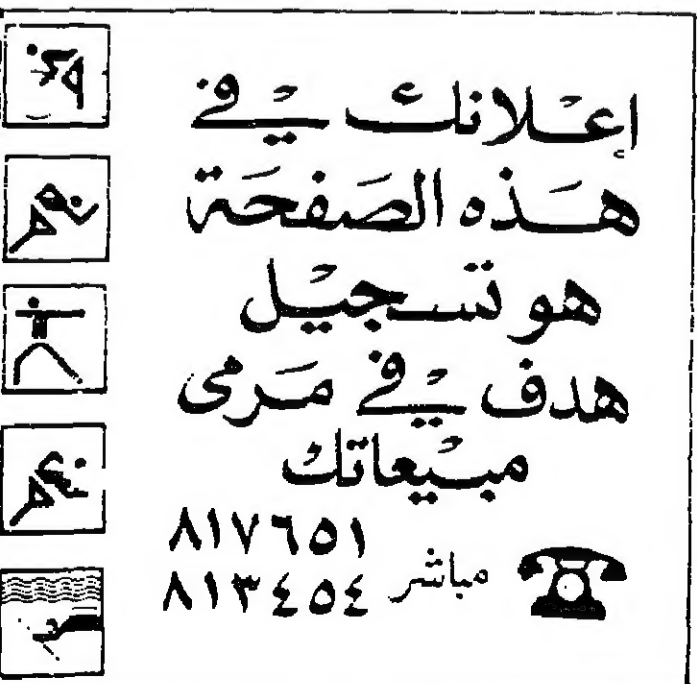 إعلانك في
هذه الصفحة
هو تسجيل
هدف في مرمى
مبيعاتك
٨١٧٦٥١
مباشر ٨١٣٤٥٤